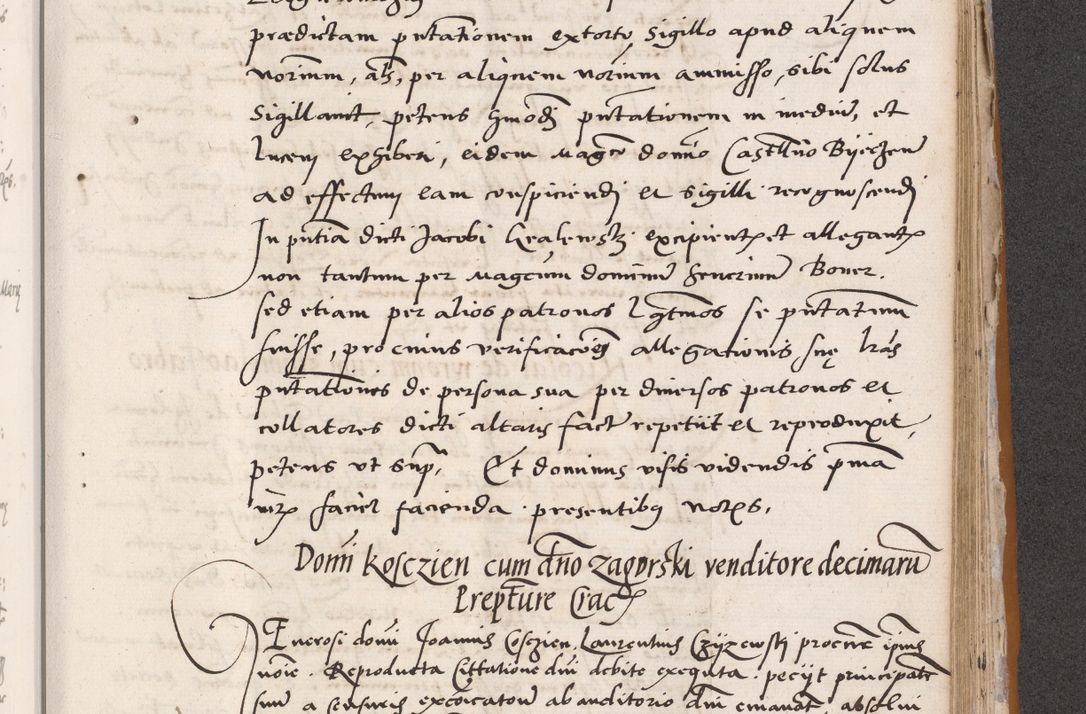 prædictam pntationem extorto sigillo apud aliquem
uorimum, als, per aliquem uorimum ammisso, sibi solus
sigillauit, petens hmodi pntationem in medium, et
lucem exhiberi, eidem Magco domino Castllano Byeczen
ad effectum eam conspiciendi et sigilli recognoscendi
In pntia dicti Jacobi excipientis et allegantis
non tantum per Magcum dominum Seuerinum Boner.
sed etiam per alios patronos lgtmos se pntatum
fuisse, pro cuius verificacõe allegationis suę lras
pntationes de persona sua per diuersos patronos et
collatores dicti altaris fact repetiit et reproduxit,
petens vt supra. Et dominus visis videndis pma
iuris faciet facienda. presentibus notis.
Domi Kosczien cum dno Zagorski venditore decimaru
Prepture Crac
Generosi domi Joannis Cosczien, Laurentius Czyzewski procur ipius
noie. Reproducta Cittatione diu debite exequuta. peciit principale
suu a censuris excoicatoru ab auditorio dni emanat absolui